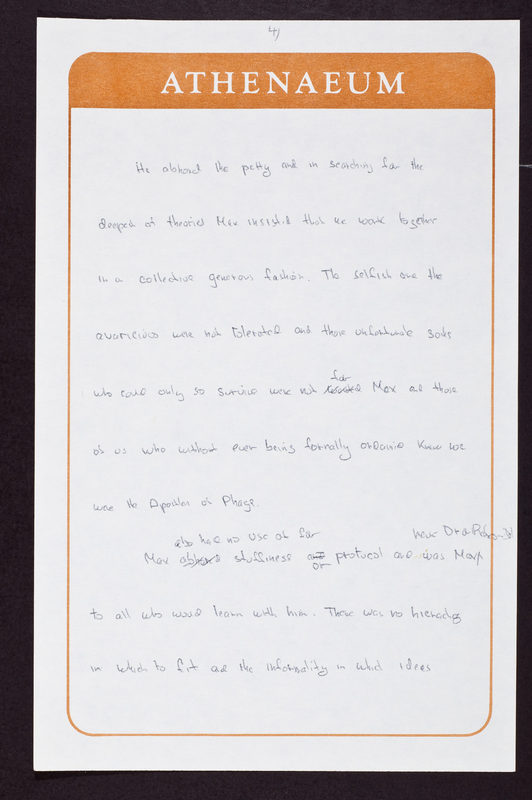 4)
ATHENAEUM
He abhored the petty and in searching for the
deepest of theories Max insisted that we work together
in a collective generous fashion. The selfish and the
avaricious were not tolerated and those unfortunate souls
who could only so survive were not for Max and those
of us who without ever being formally organized knew we
were the Apostles of Phage.
also had no use of for never Dr or Professor
Max abhored stuffiness and or protocol and was Max
to all who would learn with him. There was no hierarchy
in which to fit and the informality in which ideas